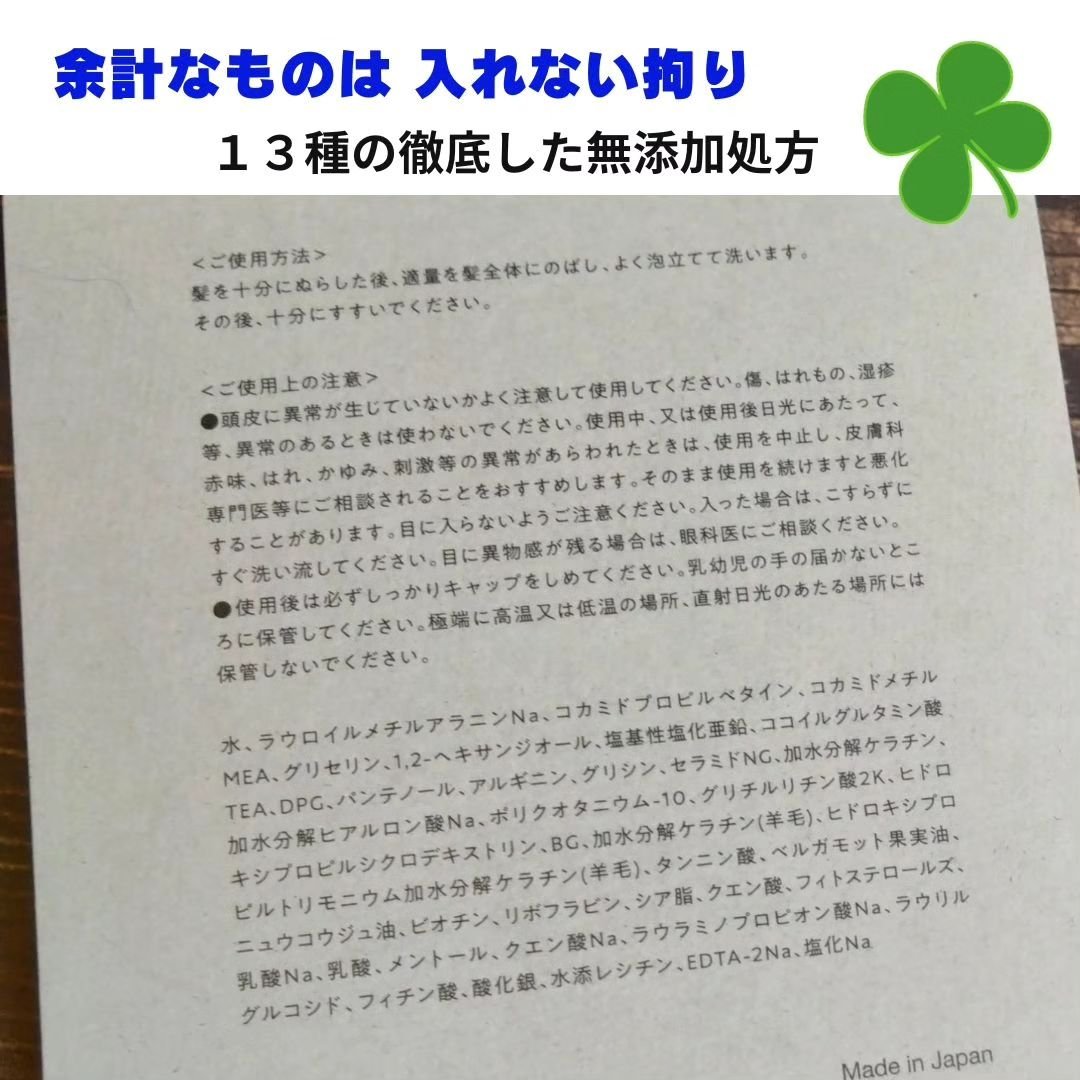 余計なものは 入れない拘り
１３種の徹底した無添加処方
<ご使用方法>
髪を十分にぬらした後、適量を髪全体にのばし、よく泡立てて洗います。
その後、十分にすすいでください。
<ご使用上の注意>
●頭皮に異常が生じていないかよく注意して使用してください。傷、はれもの、湿疹
等、異常のあるときは使わないでください。使用中、又は使用後日光にあたって、
赤味、はれ、かゆみ、刺激等の異常があらわれたときは、使用を中止し、皮膚科
専門医等にご相談されることをおすすめします。そのまま使用を続けますと悪化
することがあります。目に入らないようご注意ください。入った場合は、こすらずに
すぐ洗い流してください。目に異物感が残る場合は、眼科医にご相談ください。
●使用後は必ずしっかりキャップをしめてください。乳幼児の手の届かないとこ
ろに保管してください。極端に高温又は低温の場所、直射日光のあたる場所には
保管しないでください。
水、ラウロイルメチルアラニンNa、コカミドプロピルベタイン、コカミドメチル
MEA、グリセリン、1,2-ヘキサンジオール、塩基性塩化亜鉛、ココイルグルタミン酸
TEA、DPG、パンテノール、アルギニン、グリシン、セラミドNG、加水分解ケラチン、
加水分解ヒアルロン酸Na、ポリクオタニウム-10、グリチルリチン酸2K、ヒドロ
キシプロピルシクロデキストリン、BG、加水分解ケラチン(羊毛)、ヒドロキシプロ
ピルトリモニウム加水分解ケラチン(羊毛)、タンニン酸、ベルガモット果実油、
ニュウコウジュ油、ビオチン、リボフラビン、シア脂、クエン酸、フィトステロールズ、
乳酸Na、乳酸、メントール、クエン酸Na、ラウラミノプロピオン酸Na、ラウリル
グルコシド、フィチン酸、酸化銀、水添レシチン、EDTA-2Na、塩化Na
Made in Japan